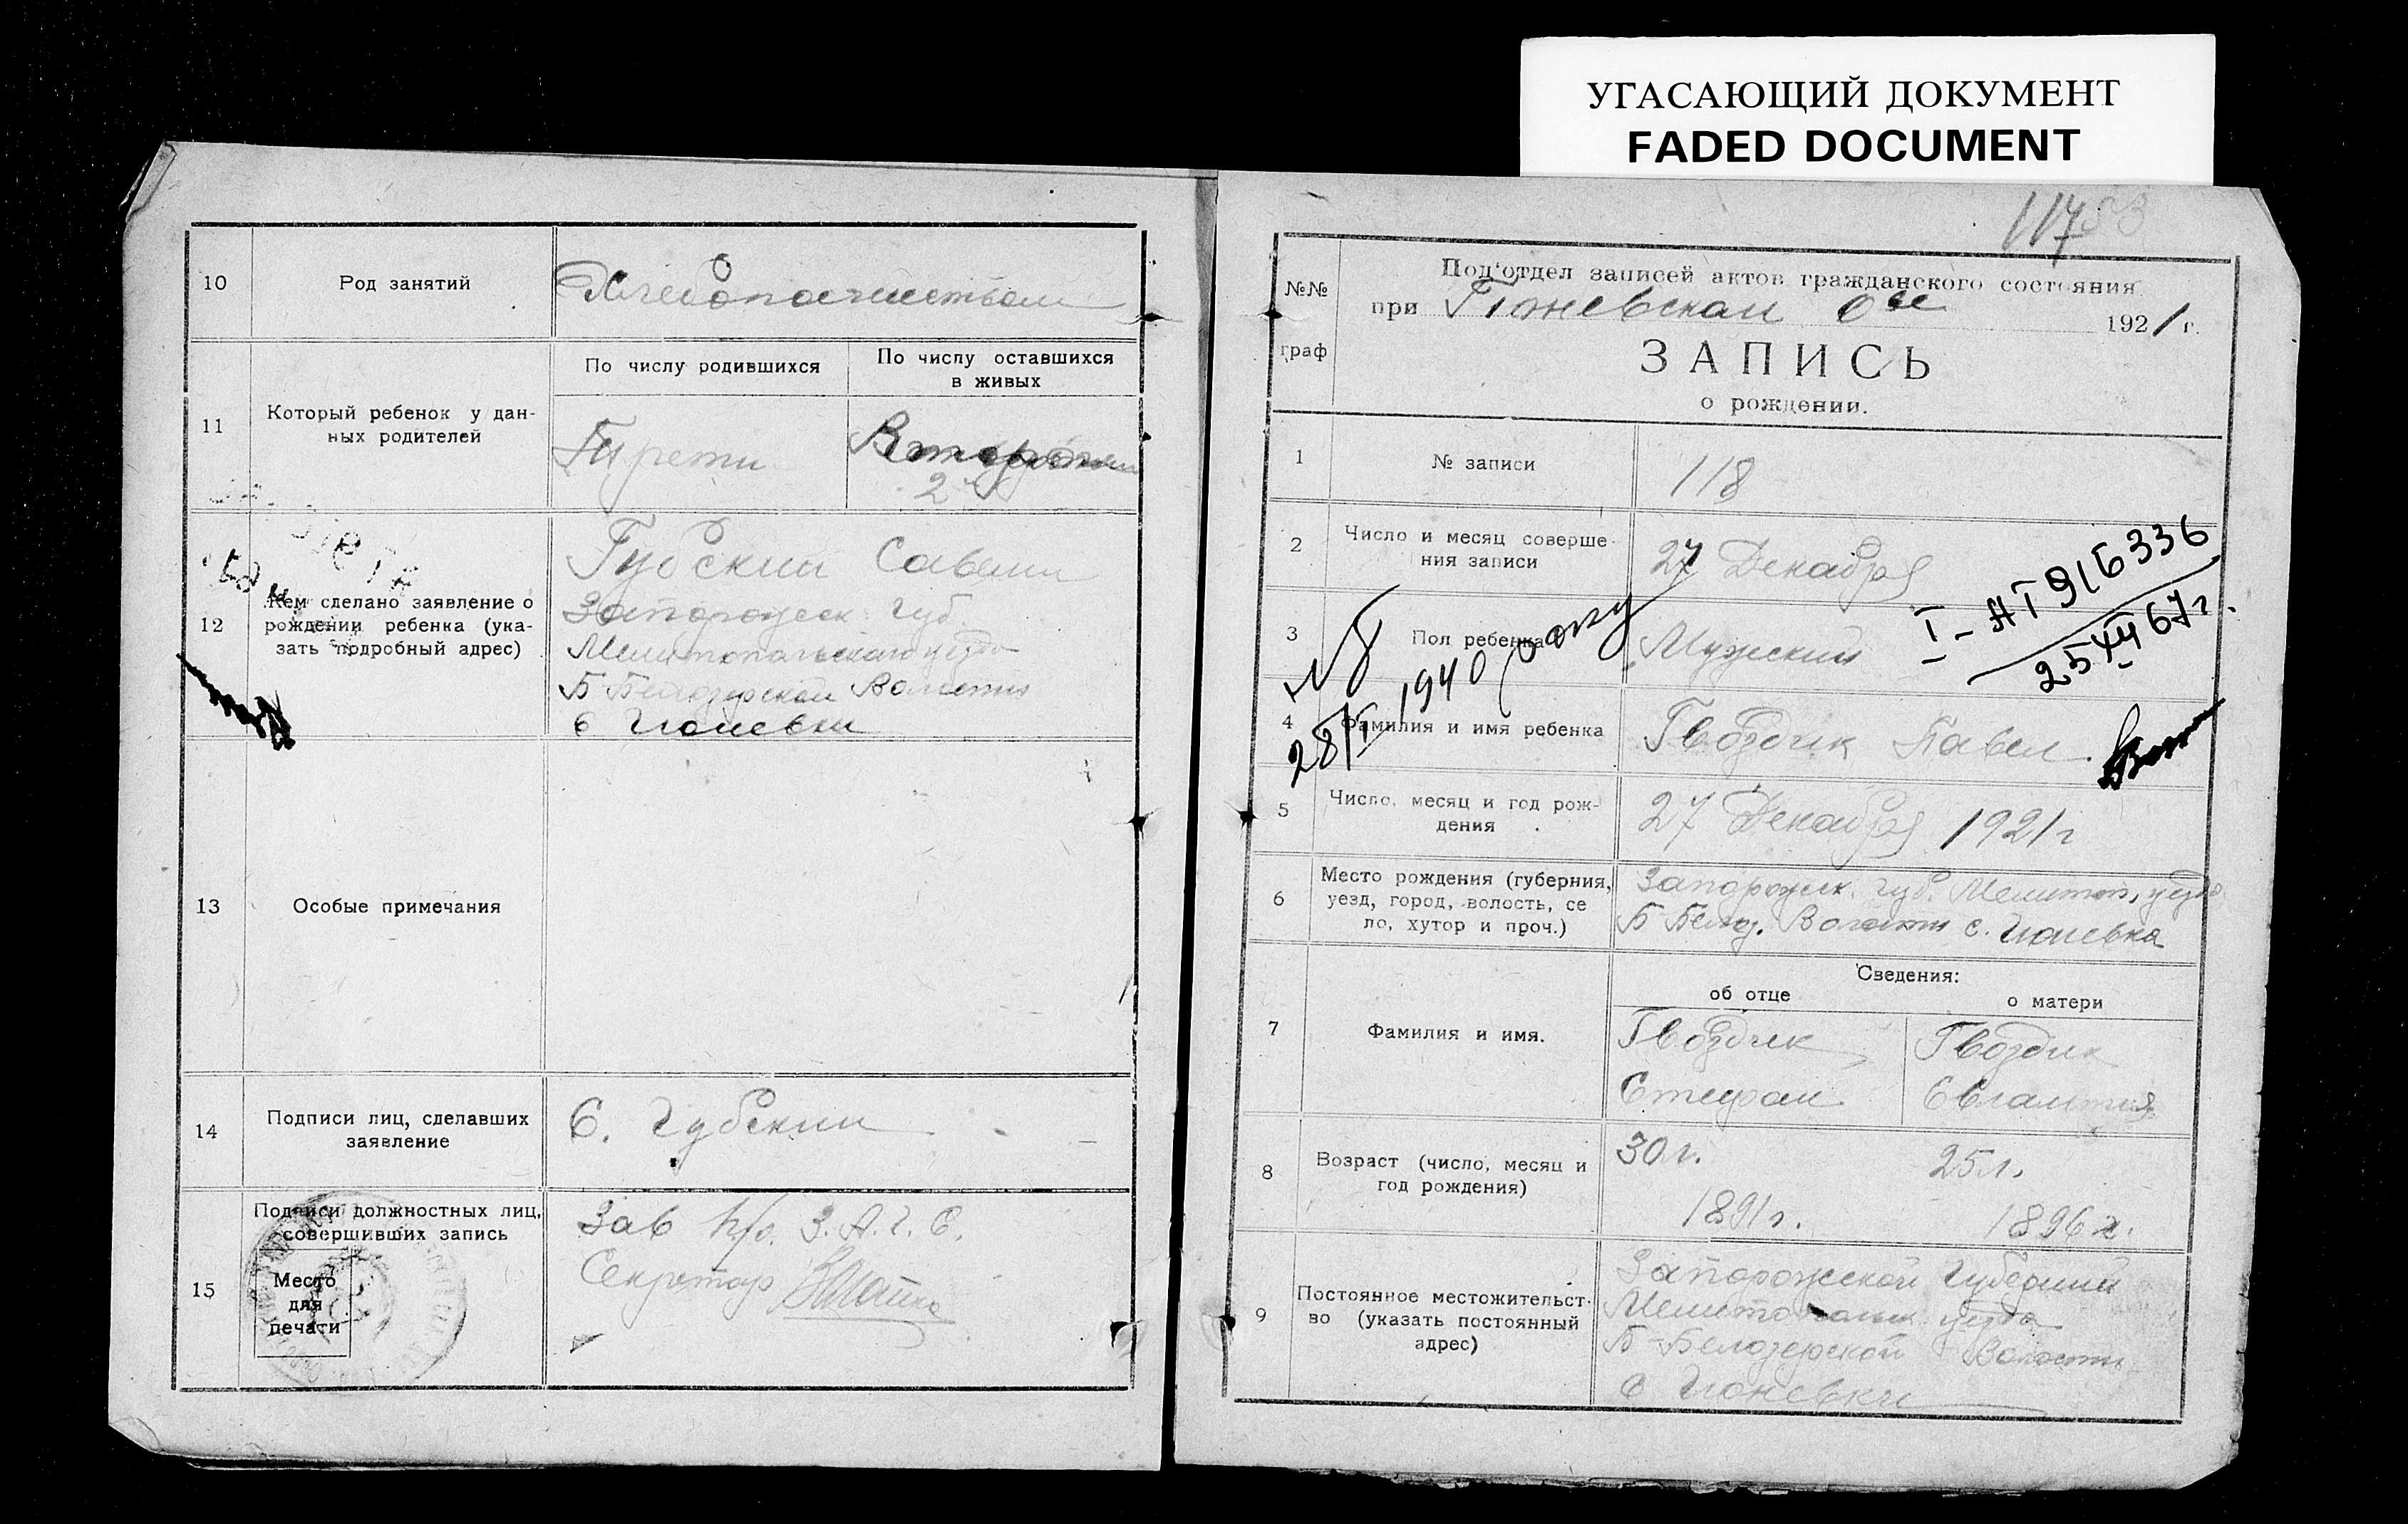 УГАСАЮЩИЙ ДОКУМЕНТ
FADED DOCUMENT
10
Род занятий
Хлебопашеством
11
Который ребенок у дан-
ных родителей
По числу родившихся
По числу оставшихся
в живых
Трети
Второй
2
12
Кем сделано заявление о
рождении ребенка (ука-
зать подробный адрес)
Губский Савелий
Запорожск. Губ.
Мелитопольского уезда
Б Белозерской Волости
с
13
Особые примечания
14
Подписи лиц, сделавших
заявление
С. Губский
15
Подписи должностных лиц,
совершивших запись
Место
для
печати
Зав п/о. З. А. Г. С.
Секретар
117
№№
граф
Под'отдел записей актов гражданского состояния
при
1921 г.
ЗАПИСЬ
о рождении.
1
№ записи
118
2
Число и месяц соверше-
ния записи
27 Декабря
3
Пол ребенка
Мужский
I-АТ 916336
25 XII 67 г.
1940
4
Фамилия и имя ребенка
Гвоздик Павел.
5
Число, месяц и год рож-
дения
27 Декабря 1921 г
6
Место рождения (губерния,
уезд, город, волость, се
ло, хутор и проч.)
Запорожск. губ. Мелитоп, уезда
Б Белоз. Волости с.
Сведения:
об отце
о матери
7
Фамилия и имя.
Гвоздик
Стефан
Гвоздик
Евлампия
8
Возраст (число, месяц и
год рождения)
30 л.
1891 г.
25 л.
1896 г.
9
Постоянное местожительст-
во (указать постоянный
адрес)
Запорожской Губернии
Мелитопольск уезда
Б-Белозерской Волости
с